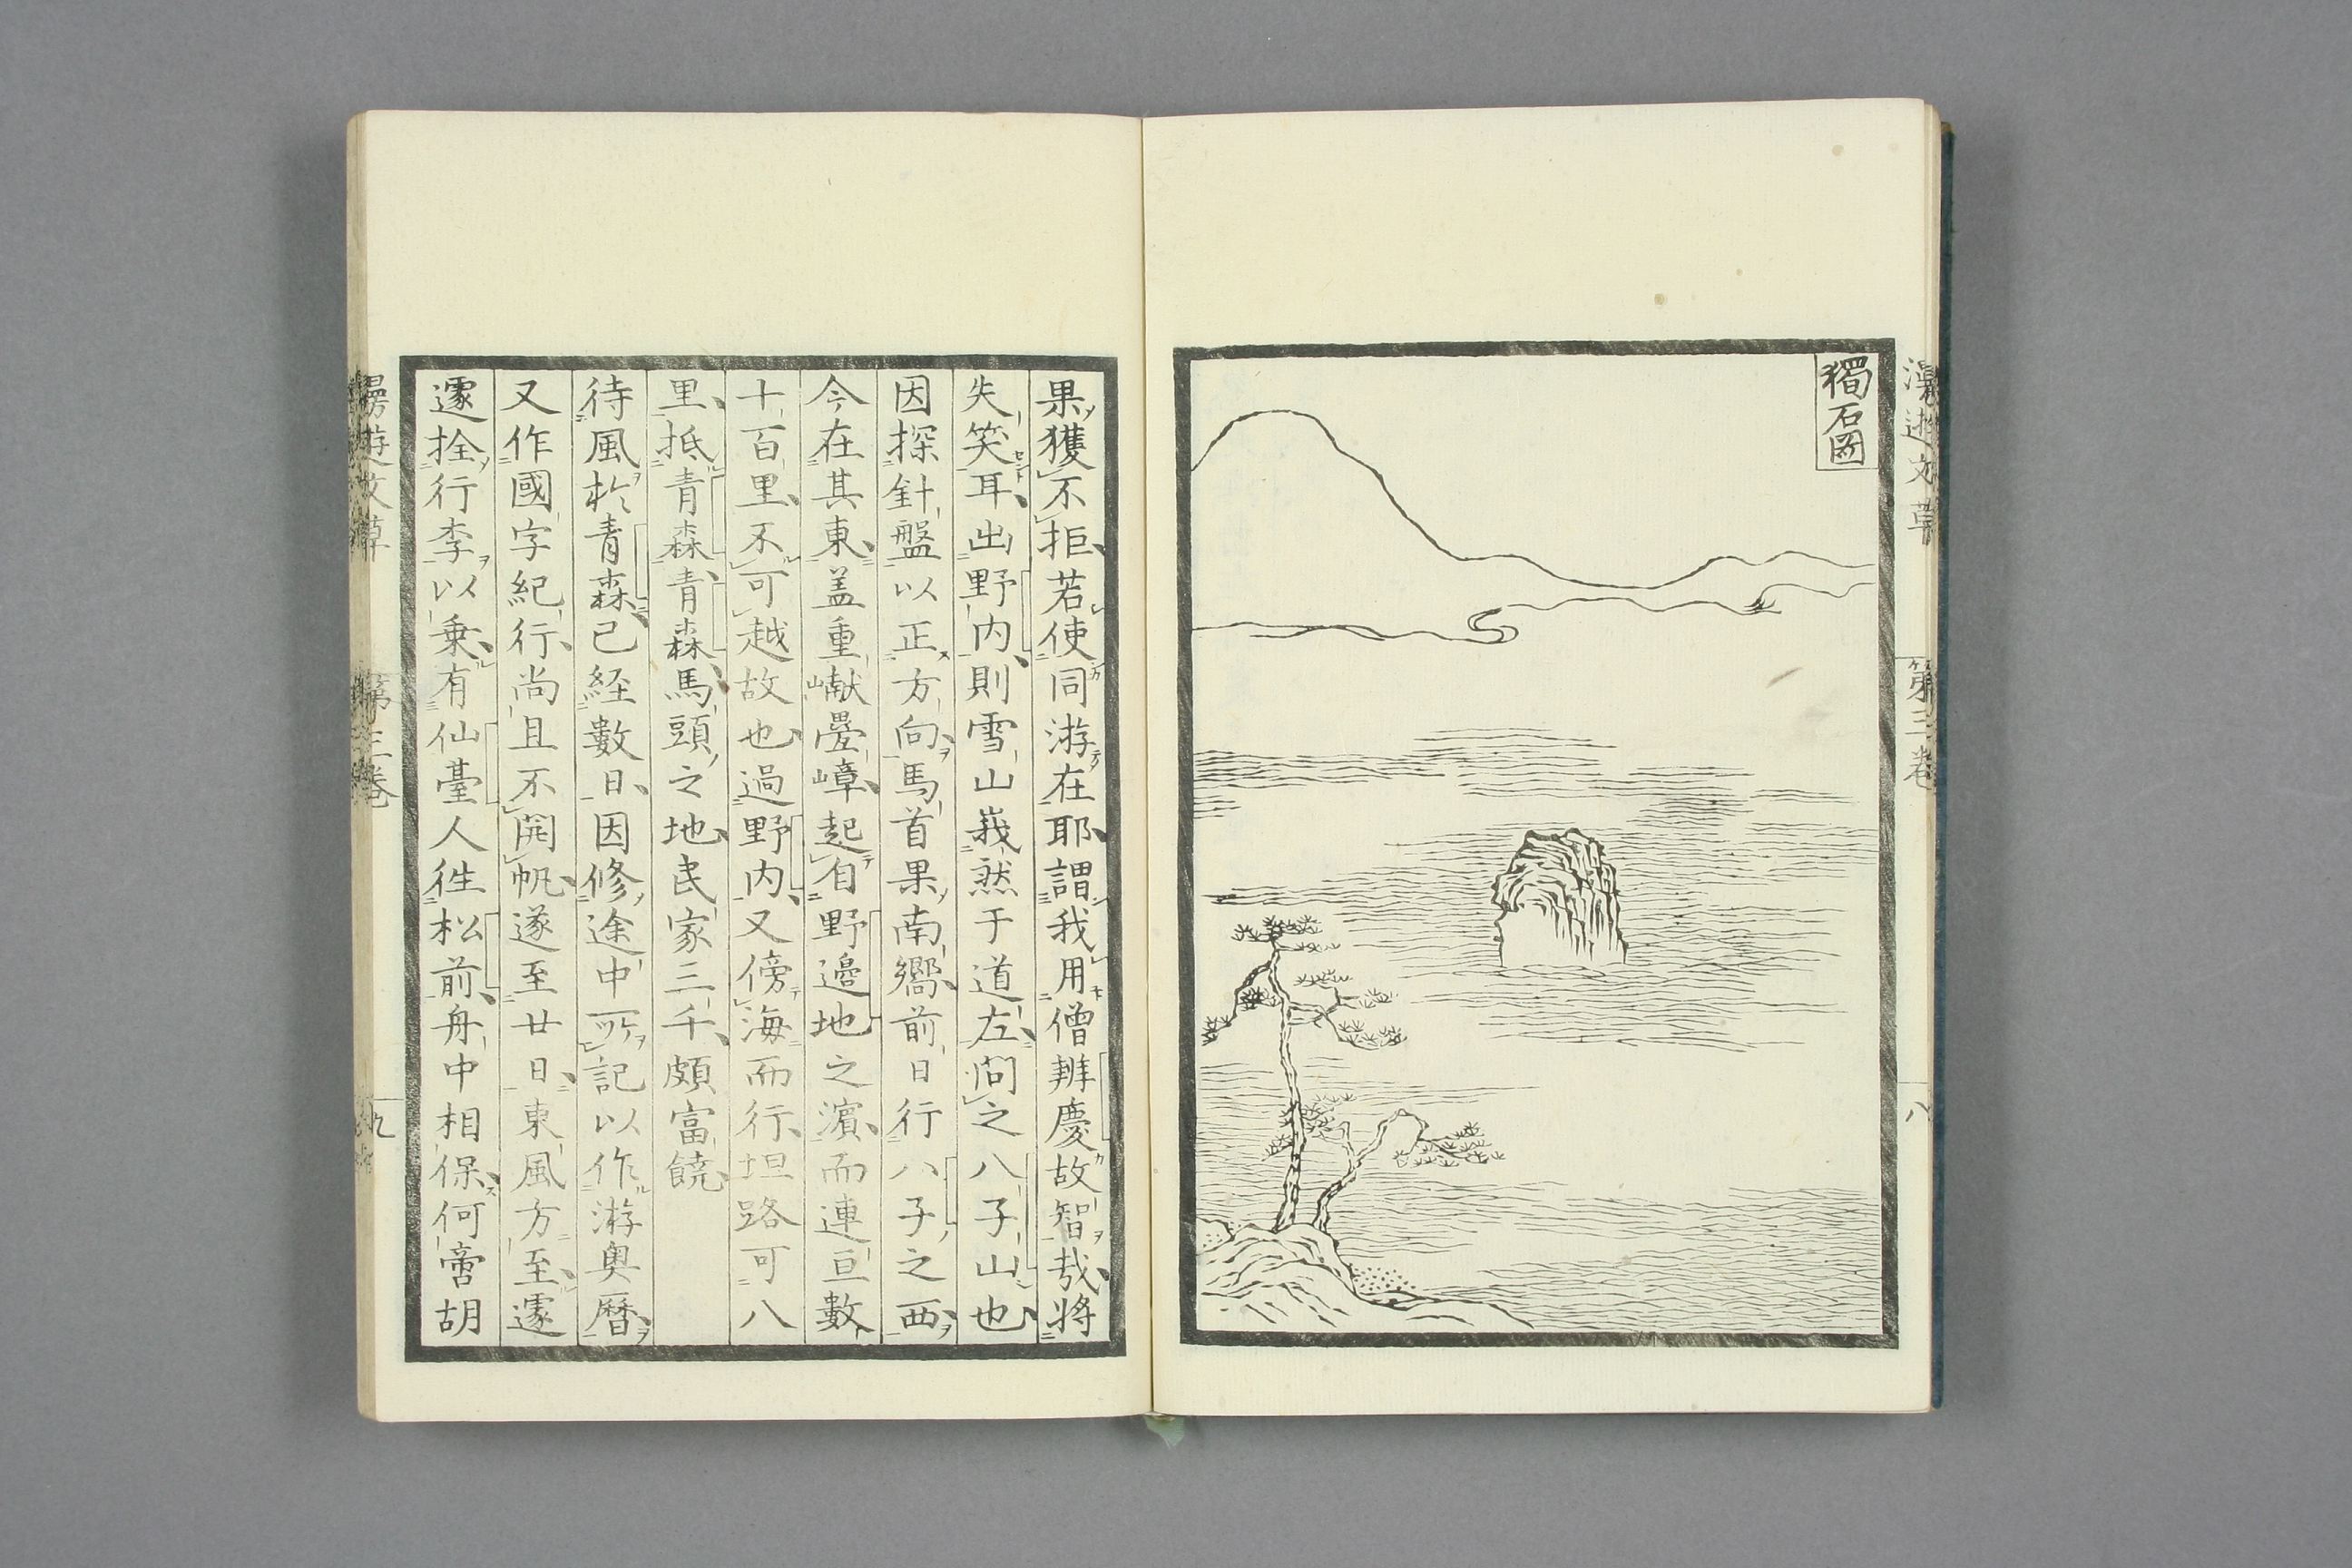 獨石圖
漫遊文草
第三卷
八
果獲不拒若使同游在耶謂我用僧辨慶故智哉將
失笑耳出野内則雪山峩然于道左問之八子山也
因探針盤以正方向馬首果南嚮前日行八子之西
今在其東盖重巘疊嶂起自野邉地之濵而連亘數
十百里不可越故也過野内又傍海而行坦路可八
里抵青森青森馬頭之地民家三千頗富饒
待風於青森已経數日因修途中所記以作游奥曆
又作國字紀行尚且不開帆遂至廿日東風方至遽
遽拴行李以乗有仙臺人徃松前舟中相保何啻胡
漫遊文草
第三卷
九